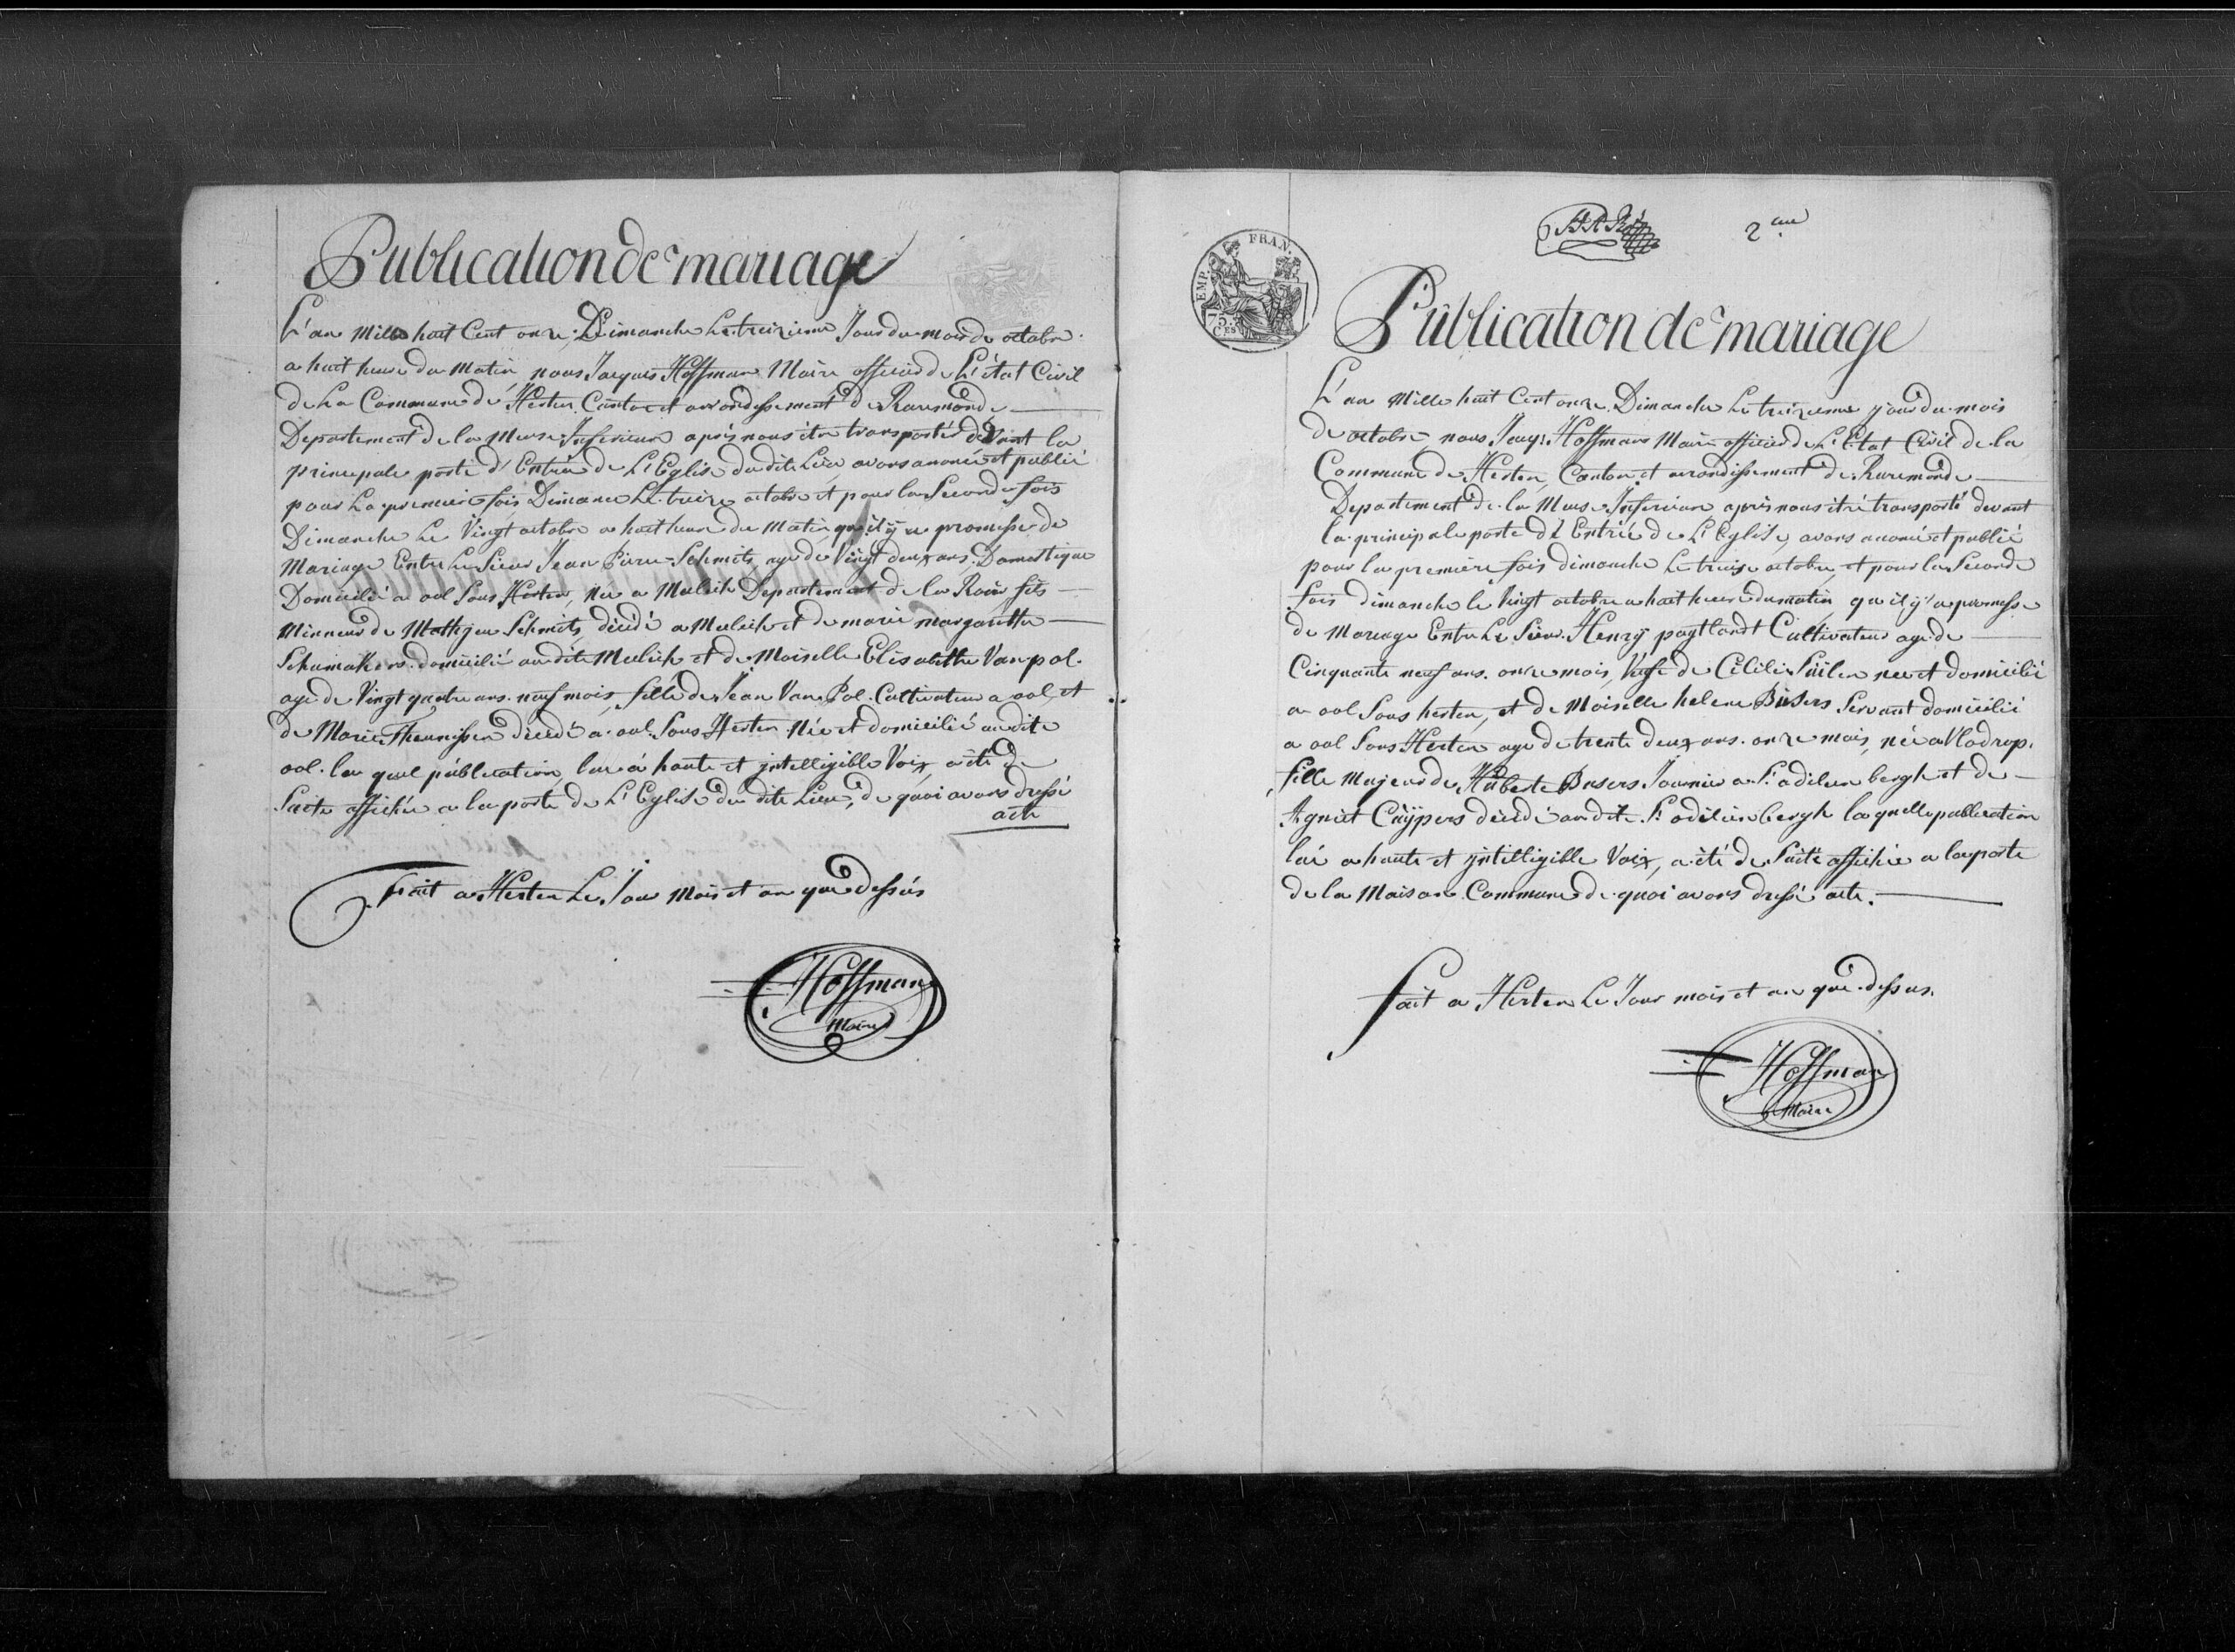 Publication de mariage
L'an Mille huit Cent onze, Dimanche Le treizieme Jour du mois de octobre
a huit heure du Matin, nous Jacques Hoffman Maire officier de L'état Civil
de La Commune de Herten, Canton et arrondissement de Ruremonde
Departement de la Meuse Inferieure après nous être transportés devant la
principale porte d'Entrée de L'Eglise du dite Lieu avons anoncé et publié
pour La premiere fois Dimance Le treize octobre et pour la Seconde fois
Dimanche Le Vingt octobre a huit heure du Matin, qu'il ÿ a promesse de
Mariage Entre Le Sieur Jean Pierre Schmits age de Vingt deux ans Domestique
Domicilié a ool Sous Herten, née a Mulich Departement de la Roer fils
Minneur de Mathijeu Schmits décidé a Mulich et de marie margarethe
Schumakers domicilié au dite Mulich et de Moiselle Elisabethe Van pol
age de Vingt quatre ans neuf mois, fille de Jean Van Pol Cultivateur a ool, et
de Marie Theunissen décidé a ool Sous Herten Née et domicilié au dite
ool. la quel publication, lue á haute et yntelligible Voix, a été de
Suite affichée a la porte de L'Eglise du dite Lieu, de quoi avons dressé
acte
Fait a Herten Le Jour Mois et an que dessus
Hoffman
Maire
2eme
EMP. FRAN.
75 Ces
Publication de mariage
L'an Mille huit Cent onze Dimanche Le treizieme jour du mois
de octobre nous Jacq: Hoffman Maire officier de L'Etat Civil de la
Commune de Herten, Canton et arrondissement de Ruremonde
Departement de la Meuse Inferieure après nous être transporté devant
la principale porte d'Entrée de L'Eglise, avons anoncé et publié
pour la première fois dimanche Le treize octobre, et pour la Seconde
fois dimanche le Vingt octobre a huit heure du matin, qu'il ÿ a promesse
de Mariage Entre Le Sieur Henrÿ pagtlandt Cultivateur age de
Cinquante neuf ans. onze mois, Veuf de Cèlilie Sülen nee et domicilié
a ool Sous herten, et de Moiselle helene Busers Servant domicilié
a ool Sous Herten age de trente deux ans. onze mois, née a Vlodrop,
fille Majeur de Huberte Busers Journier a St odilien bergh et de
Agniet Cuÿpers décidé au dite St odiliënbergh laquelle publication
lué a haute et yntelligible Voix, a été de Suite affichée a la porte
de la Maison Commune de quoi avons dressé acte.
fait a Herten Le Jour mois et an que dessus.
Hoffman
Maire